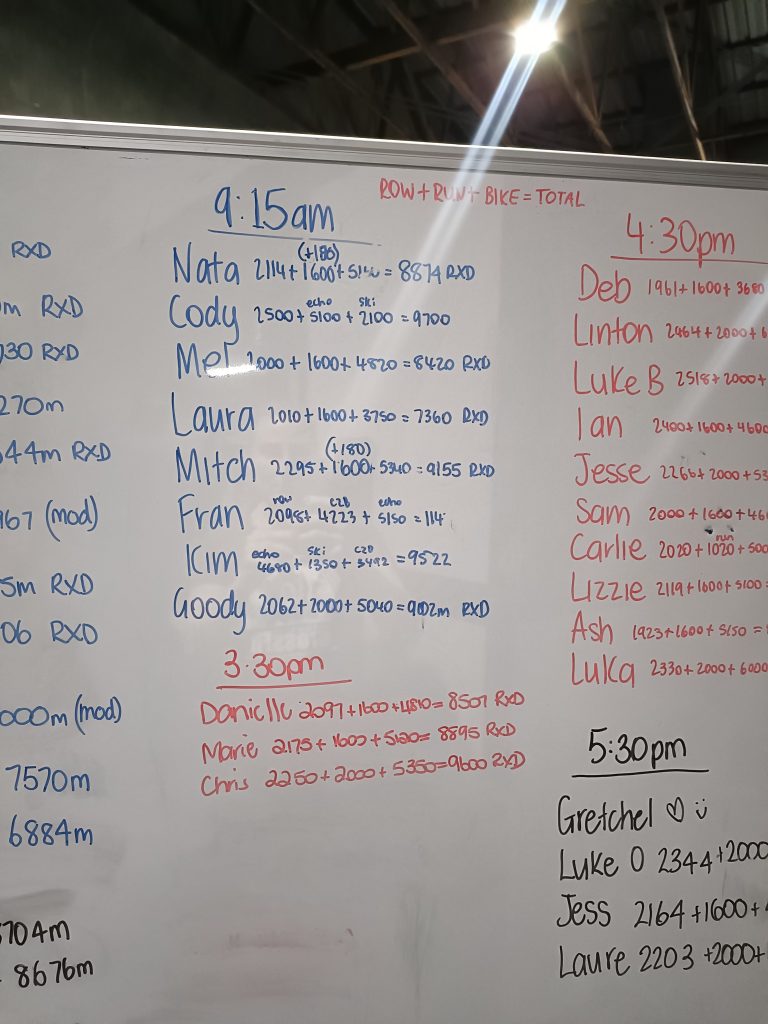 ROW + RUN + BIKE = TOTAL
RXD
m RXD
30 RXD
270m
44m RXD
967 (mod)
5m RXD
06 RXD
000m (mod)
7570m
6884m
704m
8676m
9:15am
(+180)
Nata 2114 + 1600 + = 8874 RXD
echo ski
Cody 2500 + 5100 + 2100 = 9700
Mel 2000 + 1600 + 4820 = 8420 RXD
Laura 2010 + 1600 + 3750 = 7360 RXD
(+180)
Mitch 2295 + 1600 + 5340 = 9155 RXD
row C2B echo
Fran 2098 + 4223 + 5150 = 114
echo ski C2B
Kim 4680 + 1350 + 3492 = 9522
Goody 2062 + 2000 + 5040 = m RXD
3:30pm
Danielle 2097 + 1600 + 4810 = 8507 RXD
Marie 2175 + 1600 + 5120 = 8895 RXD
Chris 2250 + 2000 + 5350 = 9600 RXD
4:30pm
Deb 1961 + 1600 + 3680
Linton 2464 + 2000 + 6
Luke B 2518 + 2000 +
Ian 2400 + 1600 + 4600
Jesse 2266 + 2000 + 53
Sam 2000 + 1600 + 46
run
Carlie 2020 + 1020 + 500
Lizzie 2119 + 1600 + 5100 =
Ash 1923 + 1600 + 5150 =
Luka 2330 + 2000 + 6000
5:30pm
Gretchel ♡ ü
Luke O 2344 + 2000
Jess 2164 + 1600 +
Laure 2203 + 2000 +